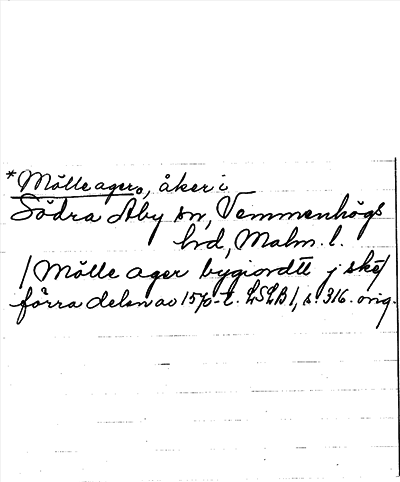 *Mölleager, åker i
Södra Åby sn, Vemmenhögs
hd, Malm. l.
/Mölle ager bygiordtt j ske/
förra delen av 1570-t. LSLB1, s. 316. orig.